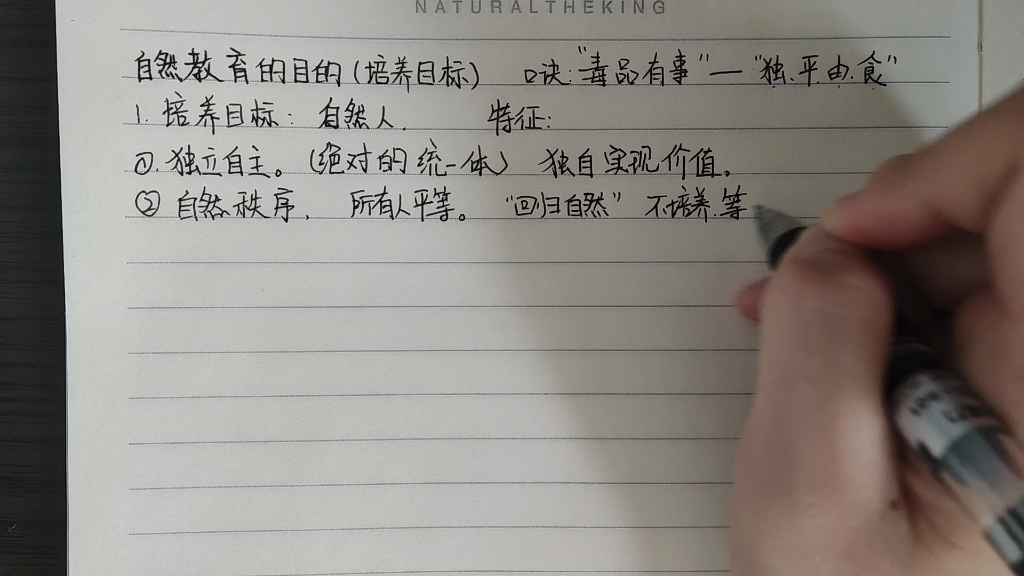 NATURALTHEKING
自然教育的目的(培养目标) 口诀:"毒品有事"—"独.平.由.食"
1. 培养目标: 自然人. 特征:
①.独立自主。(绝对的统一体) 独自实现价值。
② 自然秩序. 所有人平等。 "回归自然" 不培养.等